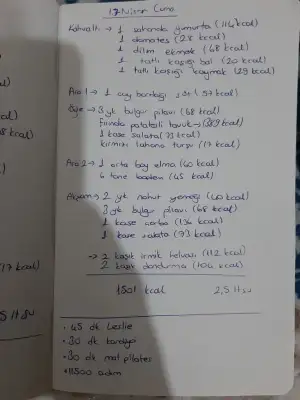 17 Nisan Cuma
Kahvaltı → 1 sahanda yumurta (114 kcal)
1 domates (28 kcal)
1 dilim ekmek (68 kcal)
1 tatlı kaşığı bal (20 kcal)
1 tatlı kaşığı kaymak (29 kcal)
Ara 1 → 1 çay bardağı kcal)
Öğle → 3 yk bulgur pilavı (68 kcal)
Fırında patatesli tavuk → (389 kcal)
1 kase salata (73 kcal)
kırmızı lahana turşu (17 kcal)
Ara 2 → 1 orta boy elma (60 kcal)
6 tane badem (45 kcal)
Akşam → 2 yk nohut yemeği (40 kcal)
3 yk bulgur pilavı (68 kcal)
1 kase çorba (136 kcal)
1 kase salata (73 kcal)
→ 2 kaşık irmik helvası (112 kcal)
2 kaşık dondurma (104 kcal)
1501 kcal 2,5 lt su
• 45 dk Leslie
• 30 dk kardiyo
• 30 dk mat pilates
• 11500 adım
kcal)
8 kcal)
(17 kcal)
5 lt su